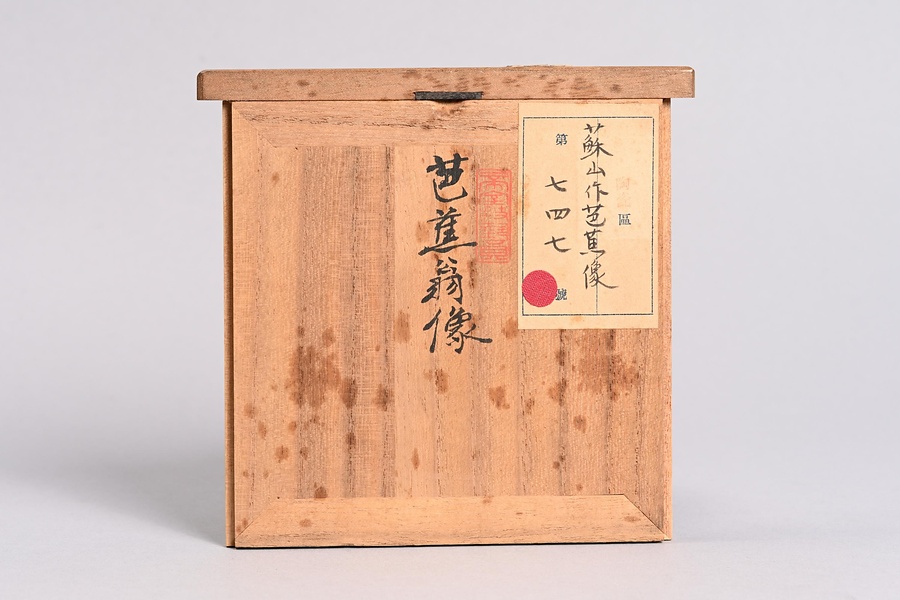 區
蘇山作芭蕉像
第 七四七 號
芭蕉翁像